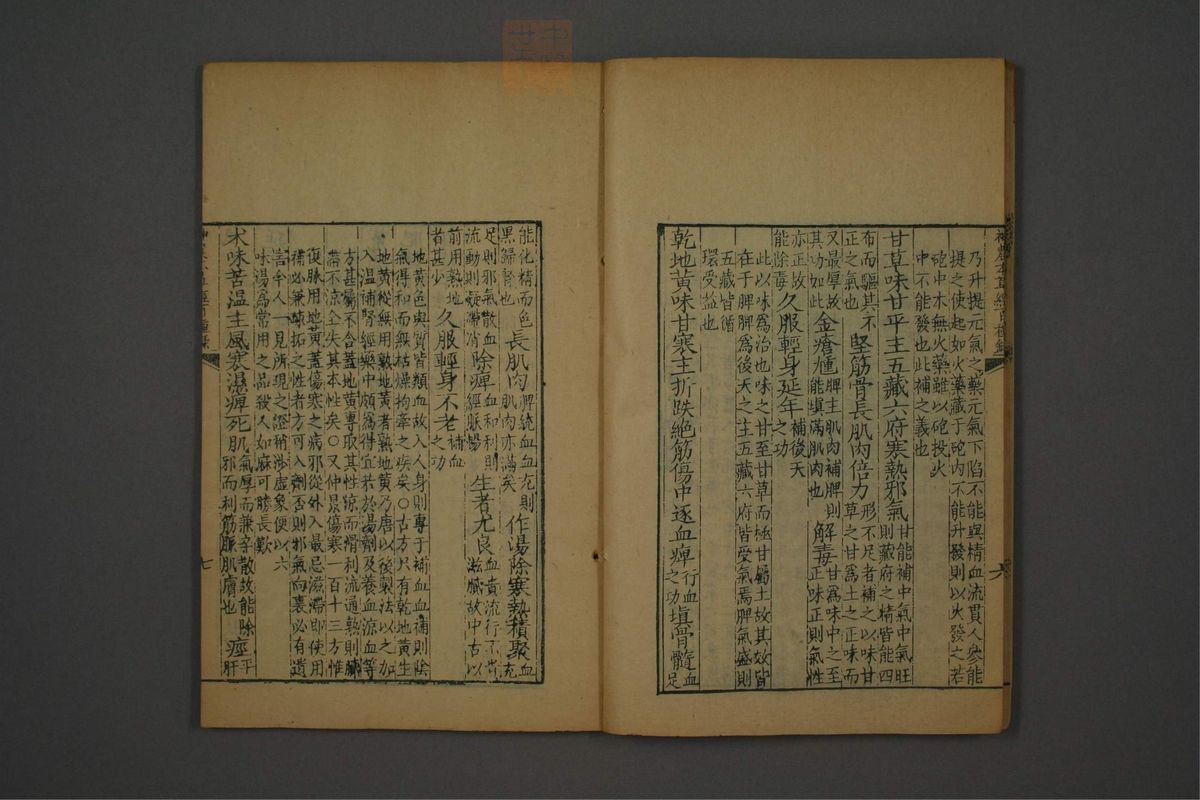 神農本草經百種錄
六
乃升提元氣之藥元氣下陷不能與精血流貫人參能
提之使起如火藥藏于砲內不能升發則以火發之若
砲中本無火藥雖以砲投火
中不能發也此補之義也
甘草味甘平主五藏六府寒熱邪氣甘能補中氣中氣旺則藏府之精皆能四
布而驅其不正之氣也堅筋骨長肌肉倍力形不足者補之以味甘草之甘爲土之正味而
又最厚故其功如此金瘡尰脾主肌肉補脾則能塡滿肌肉也解毒甘爲味中之至正味正則氣性
亦正故能除毒久服輕身延年補後天之功
此以味爲治也味之甘至甘草而極甘屬土故其效皆
在于脾脾爲後天之主五藏六府皆受氣焉脾氣盛則
五藏皆循
環受益也
乾地黃味甘寒主折跌絕筋傷中逐血痺行血之功塡骨髓血足
能化精而色黑歸腎也長肌肉脾統血血充則肌肉亦滿矣作湯除寒熱積聚血充
足則邪氣散血流動則凝滯消除痺血和利則經脈暢生者尤良血貴流行不貴滋膩故中古以
前用熟地者甚少久服輕身不老補血之功
地黃色與質皆類血故入人身則專于補血血補則陰
氣得和而無枯燥拘牽之疾矣○古方只有乾地黃生
地黃從無用熟地黃者熟地黃乃唐以後製法以之加
入温補腎經藥中頗爲得宜若於湯劑及養血涼血等
方甚屬不合蓋地黃專取其性涼而滑利流通熟則膩
滯不涼全失其本性矣○又仲景傷寒一百十三方惟
復脈用地黃蓋傷寒之病邪從外入最忌滋滯即使用
補必兼疎拓之性者方可入劑否則邪氣向裏必有遺
害今人一見所現之證稍渉虛象便以六
味湯爲常用之品殺人如麻可勝長歎
朮味苦温主風寒濕痺死肌氣厚而兼辛散故能除邪而利筋脈肌膚也痙平肝
七